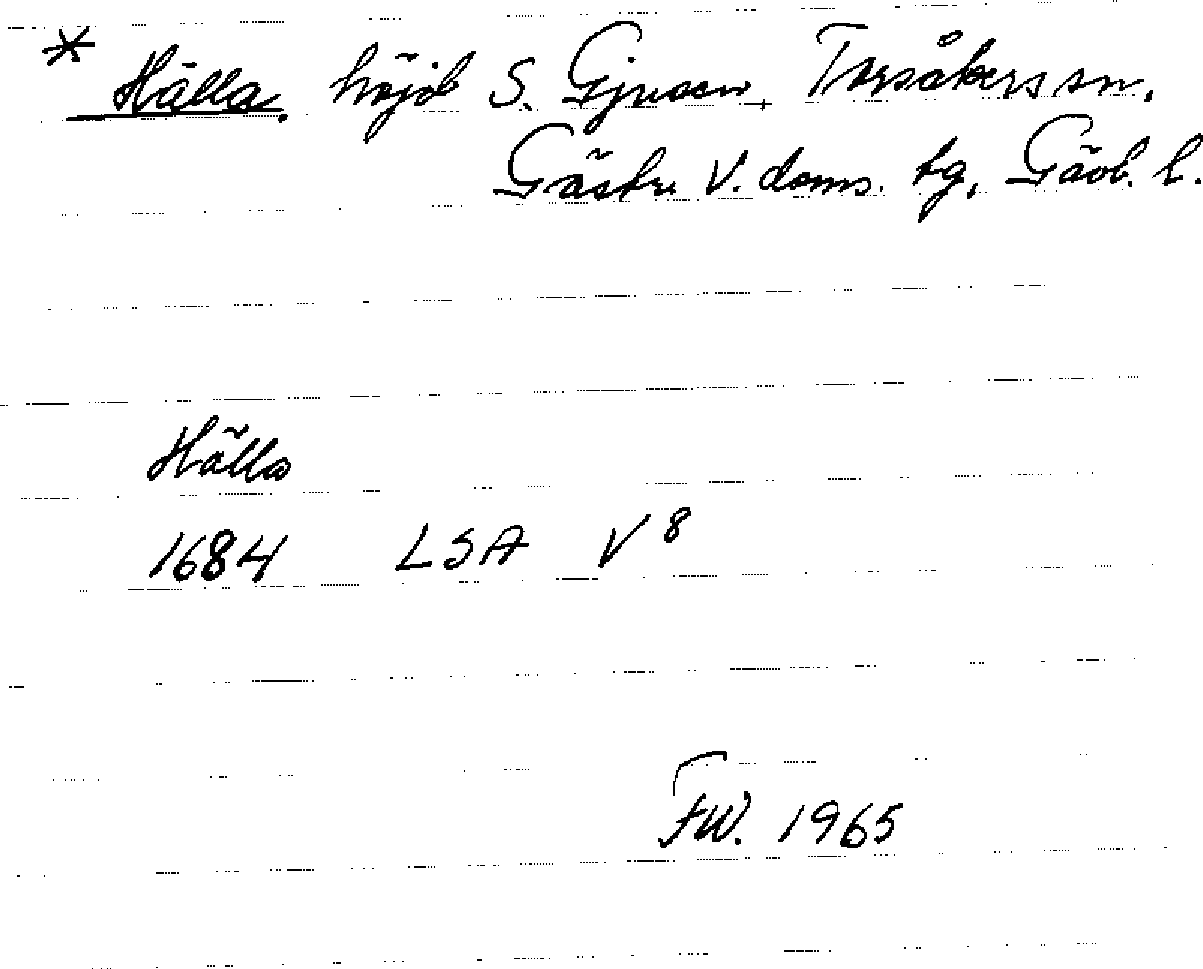 * Hälla, höjd S. Gjusen, Torsåkers sn,
Gästr. V. doms. tg, Gävb. l.
Hälla
1684 LSA V 8
FW. 1965